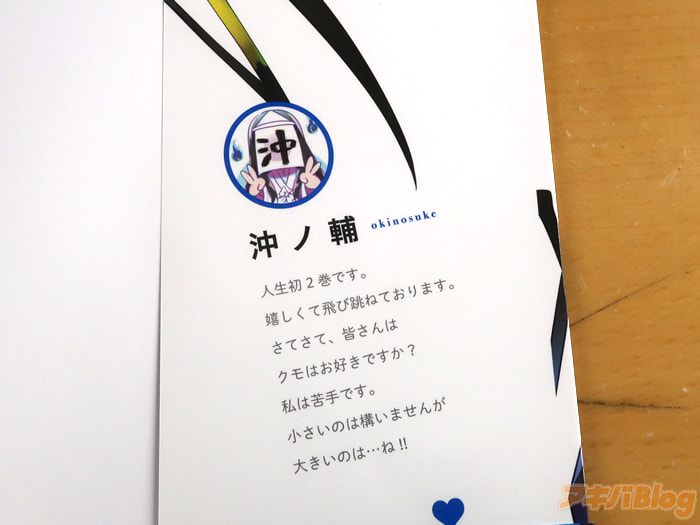 沖
沖ノ輔 okinosuke
人生初2巻です。
嬉しくて飛び跳ねております。
さてさて、皆さんは
クモはお好きですか？
私は苦手です。
小さいのは構いませんが
大きいのは…ね!!
アキバBlog